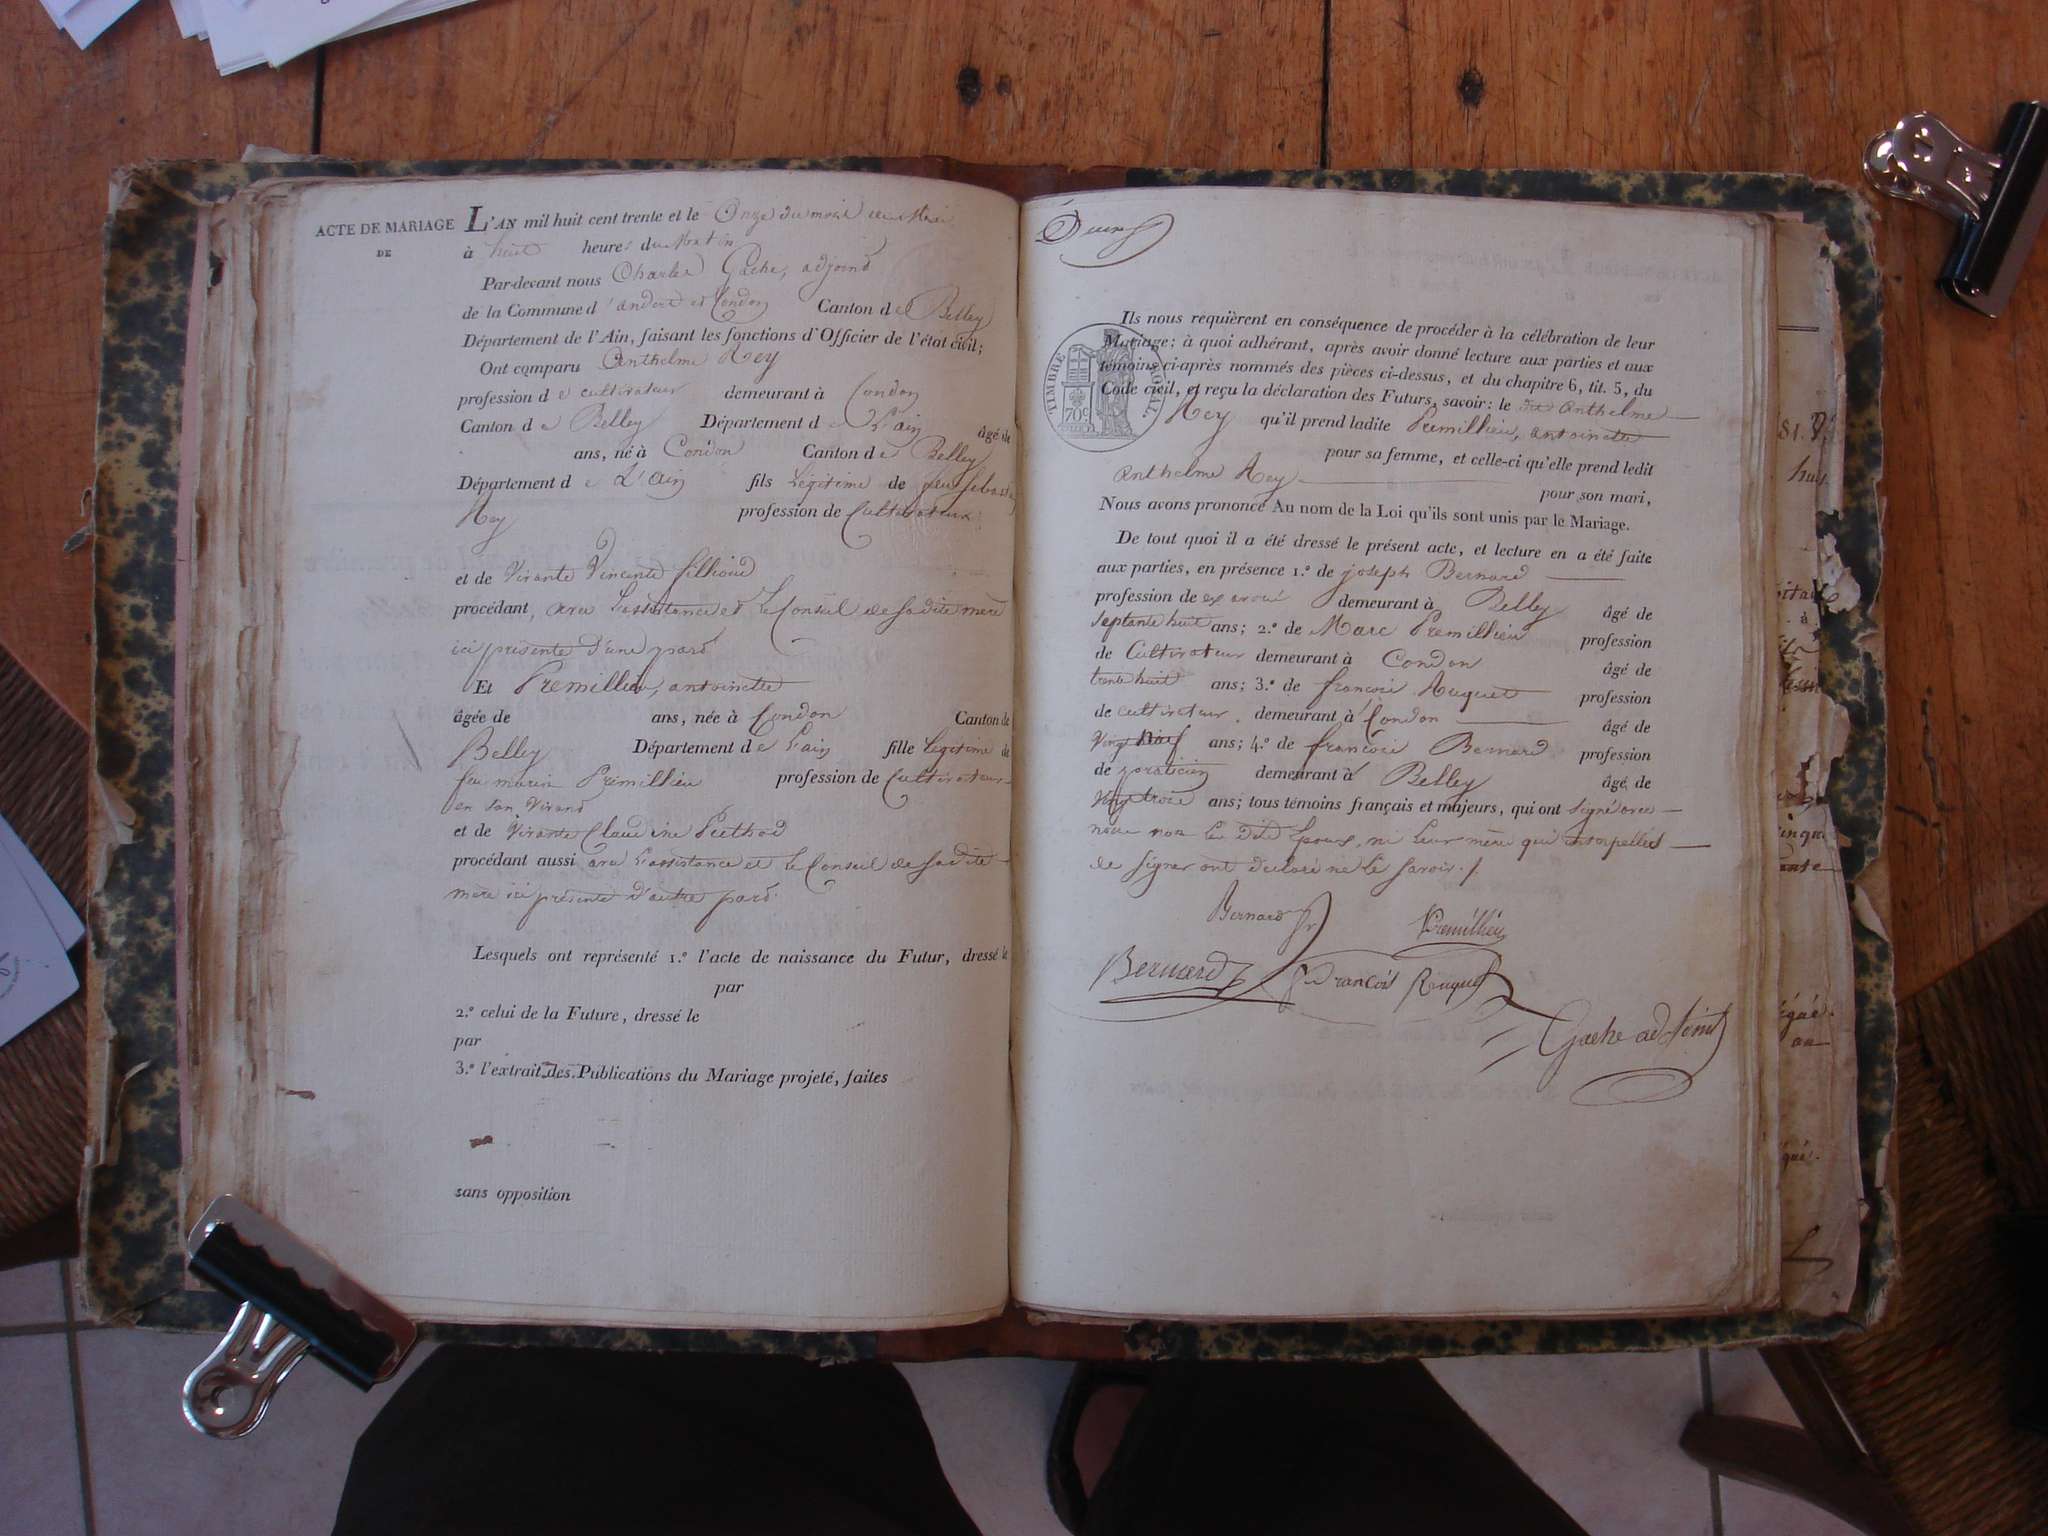 ACTE DE MARIAGE
DE
L'AN mil huit cent trente et le Onze du mois de
à huit heures du Matin
Par-devant nous Charles Gache, adjoind
de la Commune d'andert et Condon Canton de Belley
Département de l'Ain, faisant les fonctions d'Officier de l'état civil;
Ont comparu Anthelme Rey
profession de cultivateur demeurant à Condon
Canton de Belley Département de L'ain âgé de
ans, né à Condon Canton de Belley
Département de L'Ain fils Légitime de feu
Rey profession de Cultivateur
et de Vivante Vincente fillioud
procédant, avec L'assistance et Le Conseil de sadite mère
ici présente d'une pard
Et Premillieu, antoinette
âgée de ans, née à Condon Canton de
Belley Département de L'ain fille Légitime de
feu marin Premillieu profession de Cultivateur
en son Vivand
et de Vivante Claudine
procédant aussi avec L'assistance et Le Conseil de sadite
mère ici présente d'autre pard.
Lesquels ont représenté 1.º l'acte de naissance du Futur, dressé le
par
2.º celui de la Future, dressé le
par
3.º l'extrait des Publications du Mariage projeté, faites
sans opposition
TIMBRE ROYAL
70c
Ils nous requièrent en conséquence de procéder à la célébration de leur
Mariage: à quoi adhérant, après avoir donné lecture aux parties et aux
témoins ci-après nommés des pièces ci-dessus, et du chapitre 6, tit. 5, du
Code civil, et reçu la déclaration des Futurs, savoir: le dit Anthelme
Rey qu'il prend ladite Premillieu, antoinette
pour sa femme, et celle-ci qu'elle prend ledit
Anthelme Rey pour son mari,
Nous avons prononcé Au nom de la Loi qu'ils sont unis par le Mariage.
De tout quoi il a été dressé le présent acte, et lecture en a été faite
aux parties, en présence 1.º de joseph Bernard
profession de ex avoué demeurant à Belley âgé de
septante huit ans; 2.º de Marc Premillieu profession
de Cultivateur demeurant à Condon âgé de
trente huit ans; 3.º de francois Ruguet profession
de cultivateur demeurant à Condon âgé de
Vingt ans; 4.º de francois Bernard profession
de praticien demeurant à Belley âgé de
Vingt trois ans; tous témoins français et majeurs, qui ont signé avec
nous non Les dits Epoux, ni leur mère qui interpellés
de signer ont déclaré ne le savoir./.
Bernard
Premillieu
Bernard
François Ruguet
Gache adjoint